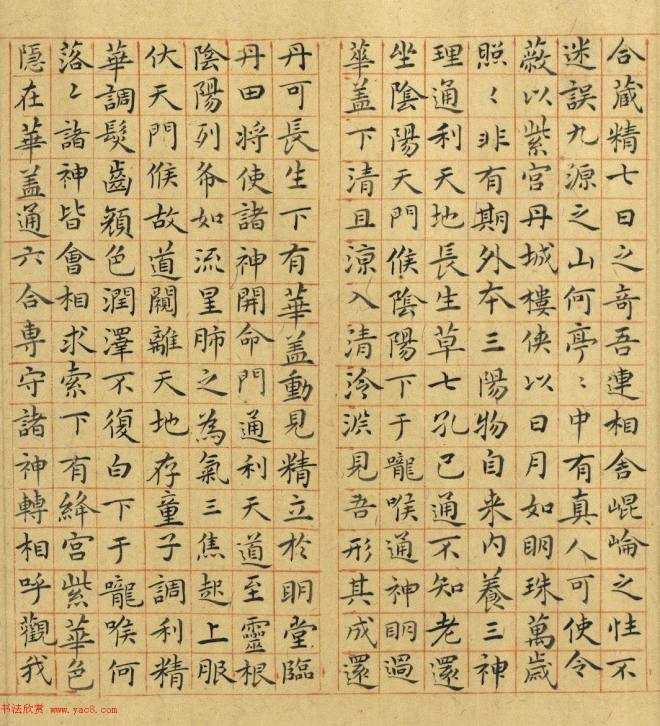 合藏精七日之奇吾連相舍崐崘之性不
迷誤九源之山何亭〻中有真人可使令
蔽以紫宮丹城樓俠以日月如明珠萬歲
照〻非有期外本三陽物自来内養三神
理通利天地長生草七孔已通不知老還
坐陰陽天門候陰陽下于嚨喉通神明過
華盖下清且涼入清泠渕見吾形其成還
丹可長生下有華盖動見精立於明堂臨
丹田將使諸神開命門通利天道至靈根
陰陽列布如流星肺之為氣三焦起上服
伏天門候故道闚離天地存童子調利精
華調髮齒顏色潤澤不復白下于嚨喉何
落〻諸神皆會相求索下有絳宮紫華色
隱在華盖通六合專守諸神轉相呼觀我
书法欣赏 www.yac8.com